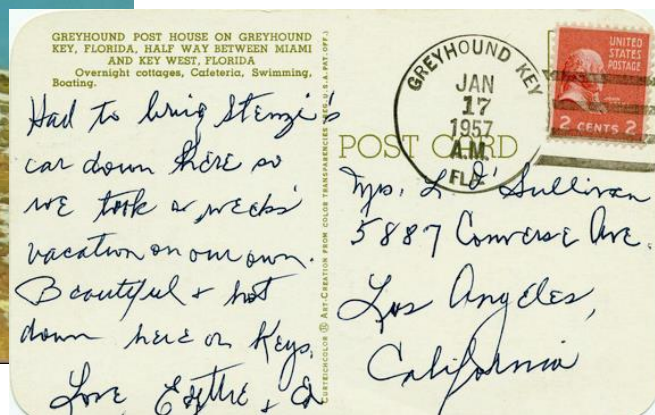 GREYHOUND POST HOUSE ON GREYHOUND
KEY, FLORIDA, HALF WAY BETWEEN MIAMI
AND KEY WEST, FLORIDA
Overnight cottages, Cafeteria, Swimming,
Boating.
Had to bring Stenzi's
car down here so
we took a weeks'
vacation on our own.
Beautiful + hot
down here on Keys.
Love, Edythe + Ed
CURTEICHCOLOR ® ART-CREATION FROM COLOR TRANSPARENCIES (REG. U.S.A. PAT. OFF.)
GREYHOUND KEY
JAN
17
1957
A.M.
FLA.
UNITED
STATES
POSTAGE
2 CENTS 2
POST CARD
Mrs. L. O'Sullivan
5887 Converse Ave.
Los Angeles,
California